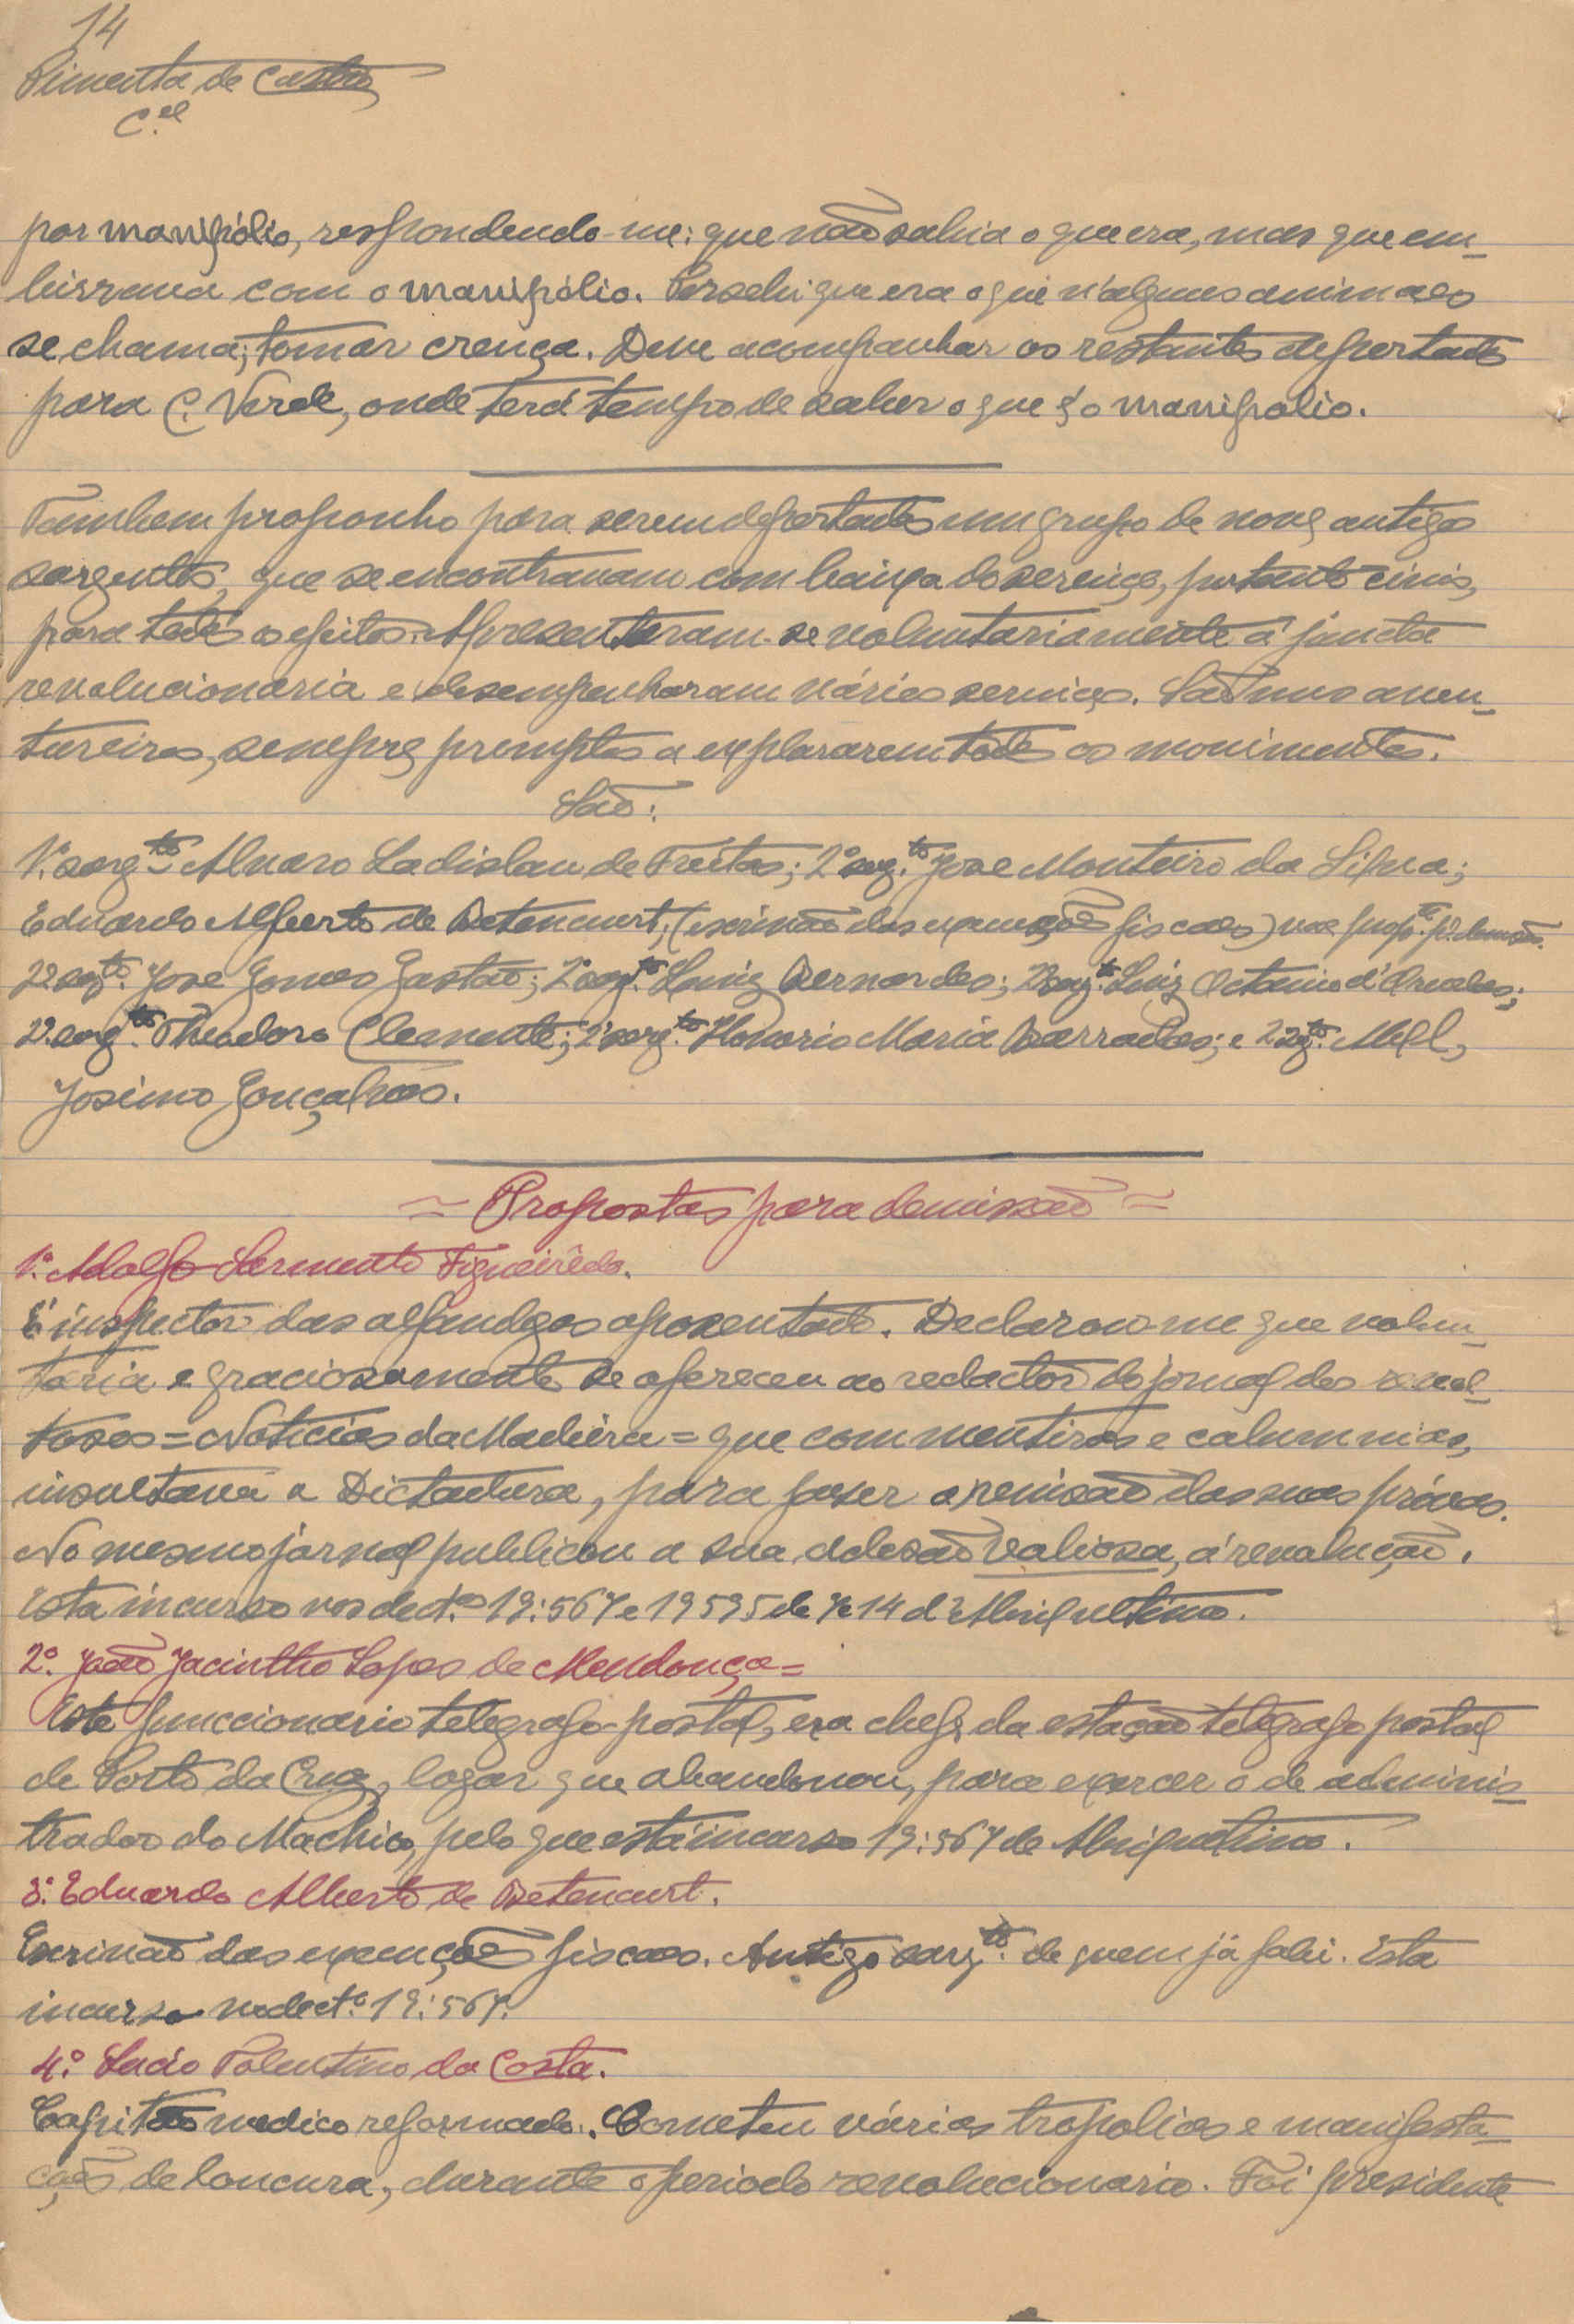 14
Pimenta de Castro
C.el
por manipólio, respondendo-me: que não sabia o que era, mas que em-
birrava com o manipólio. Persebi que era o que n'alguns animaes
se chama; tomar crença. Deve acompanhar os restantes deportados
para C. Verde, onde terá tempo de saber o que é o manipolio.
Tambem proponho para serem deportados um grupo de nove antigos
sargentos, que se encontravam com baixa do serviço, portanto civis,
para todos os efeitos. Apresentaram-se voluntariamente á juncta
revolucionaria e desempenharam vários serviços. São uns aven-
tureiros, sempre promptos a explorarem todos os movimentos.
São:
1.º sarg.to Alvaro Ladislau de Freitas; 2.º sarg.to José Monteiro da Silva;
Eduardo Alberto de Betencurt, (escrivão das execuções fiscaes) vae prop.to p.ª demissão.
2.º sarg.to José Gomes Gastão; 2.º sarg.to Luiz Bernardes; 2.º sarg.to Luiz Octavio d'Ornelas;
2.º sarg.to Theodoro Clemente; 2.º sarg.to Honorio Maria Barradas; e 2.º sarg.to M.el
Josimo Gonçalves.
= Propostas para demissão =
1.º Adolfo Sarmento Figueirêdo.
É inspector das alfandegas aposentado. Declarou-me que volun-
taria e graciosamente se ofereceu ao redactor do jornal dos revol-
tosos = Noticias da Madeira = que com mentiras e calumnias,
insultava a Dictadura, para faser a revisão das suas próvas.
No mesmo jornal publicou a sua, adesão valiosa, á revolução.
Esta incurso nos dect.os 19:567 e 19595 de 7 e 14 d'Abril ultimo.
2.º João Jacintho Lopes de Mendonça =
Este funccionario telegrafo-postal, era chefe da estação telegrafo postal
de Porto da Cruz, logar que abandonou, para exercer o de adminis-
trador do Machico, pelo que está incurso 19:567 de Abril ultimo.
3.º Eduardo Alberto de Betencurt.
Escrivão das execuções fiscaes. Antigo sarg.to de quem já falei. Esta
incurso no dect.º 19:567.
4.º Lucio Tolentino da Costa.
Capitão medico reformado. Cometeu várias tropolias e manifesta-
ções de loucura, durante o periodo revolucionario. Foi presidente